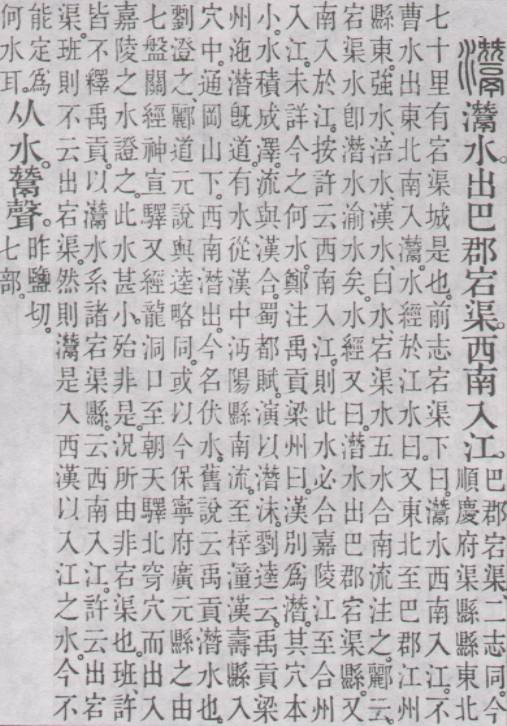 灊 灊水。出巴郡宕渠。西南入江。
巴郡宕渠、二志同。今
順慶府渠縣縣東北
七十里有宕渠城是也。前志宕渠下曰。灊水西南入江。不
曹水出東北南入灊。水經於江水曰。又東北至巴郡江州
縣東。強水、涪水、漢水、白水、宕渠水五水合南流注之。酈云。
宕渠水卽潛水渝水矣。水經又曰。潛水出巴郡宕渠縣。又
南入於江。按許云西南入江。則此水必合嘉陵江至合州
入江。未詳今之何水。鄭注禹貢梁州曰。漢別爲潛。其穴本
小。水積成澤。流與漢合。蜀都賦。演以潛沬。劉逵云。禹貢梁
州沱潛旣道。有水從漢中沔陽縣南流。至梓潼漢壽縣入
穴中。通岡山下。西南潛出。今名伏水。舊說云禹貢潛水也。
劉澄之、酈道元說與逵略同。或以今保寧府廣元縣之由
七盤關經神宣驛又經龍洞口至朝天驛北穿穴而出入
嘉陵之水證之。此水甚小。殆非是。況所由非宕渠也。班許
皆不釋禹貢。以灊水系諸宕渠縣。云西南入江。許云出宕
渠。班則不云出宕渠。然則灊是入西漢以入江之水。今不
能定爲
何水耳。
从水。鬵聲。
昨鹽切。
七部。